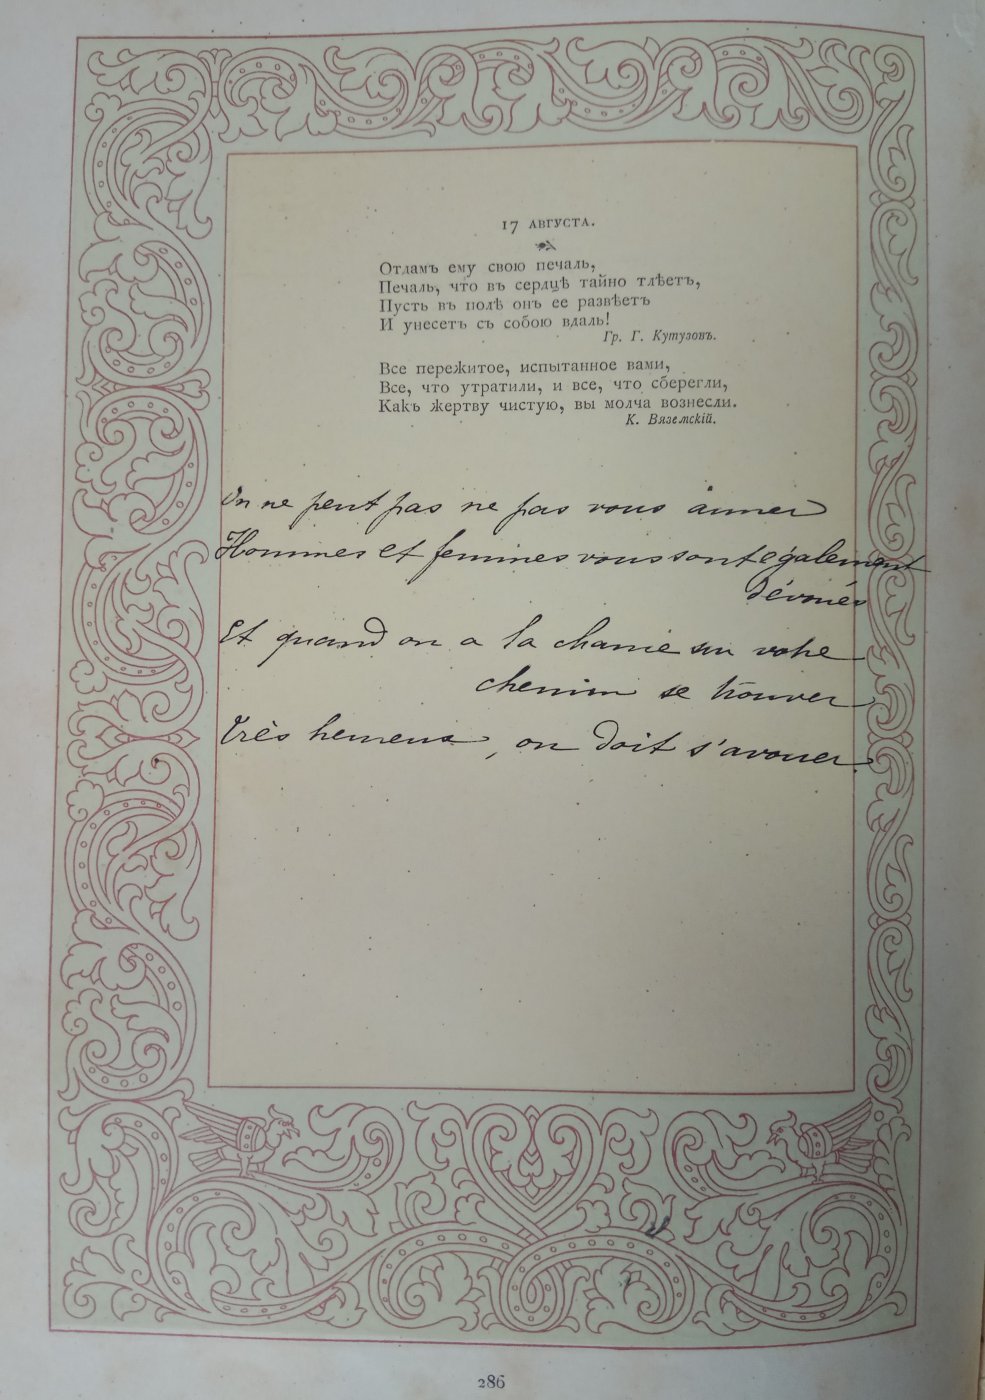 17 АВГУСТА.
Отдамъ ему свою печаль,
Печаль, что въ сердцѣ тайно тлѣетъ,
Пусть въ полѣ онъ ее развѣетъ
И унесетъ съ собою вдаль!
Гр. Г. Кутузовъ.
Все пережитое, испытанное вами,
Все, что утратили, и все, что сберегли,
Какъ жертву чистую, вы молча вознесли.
К. Вяземскій.
On ne peut pas ne pas vous aimer
Hommes et femmes vous sont également
dévoués
Et quand on a la chance sur votre
chemin se trouver
Très heureux, on doit s'avouer.
286